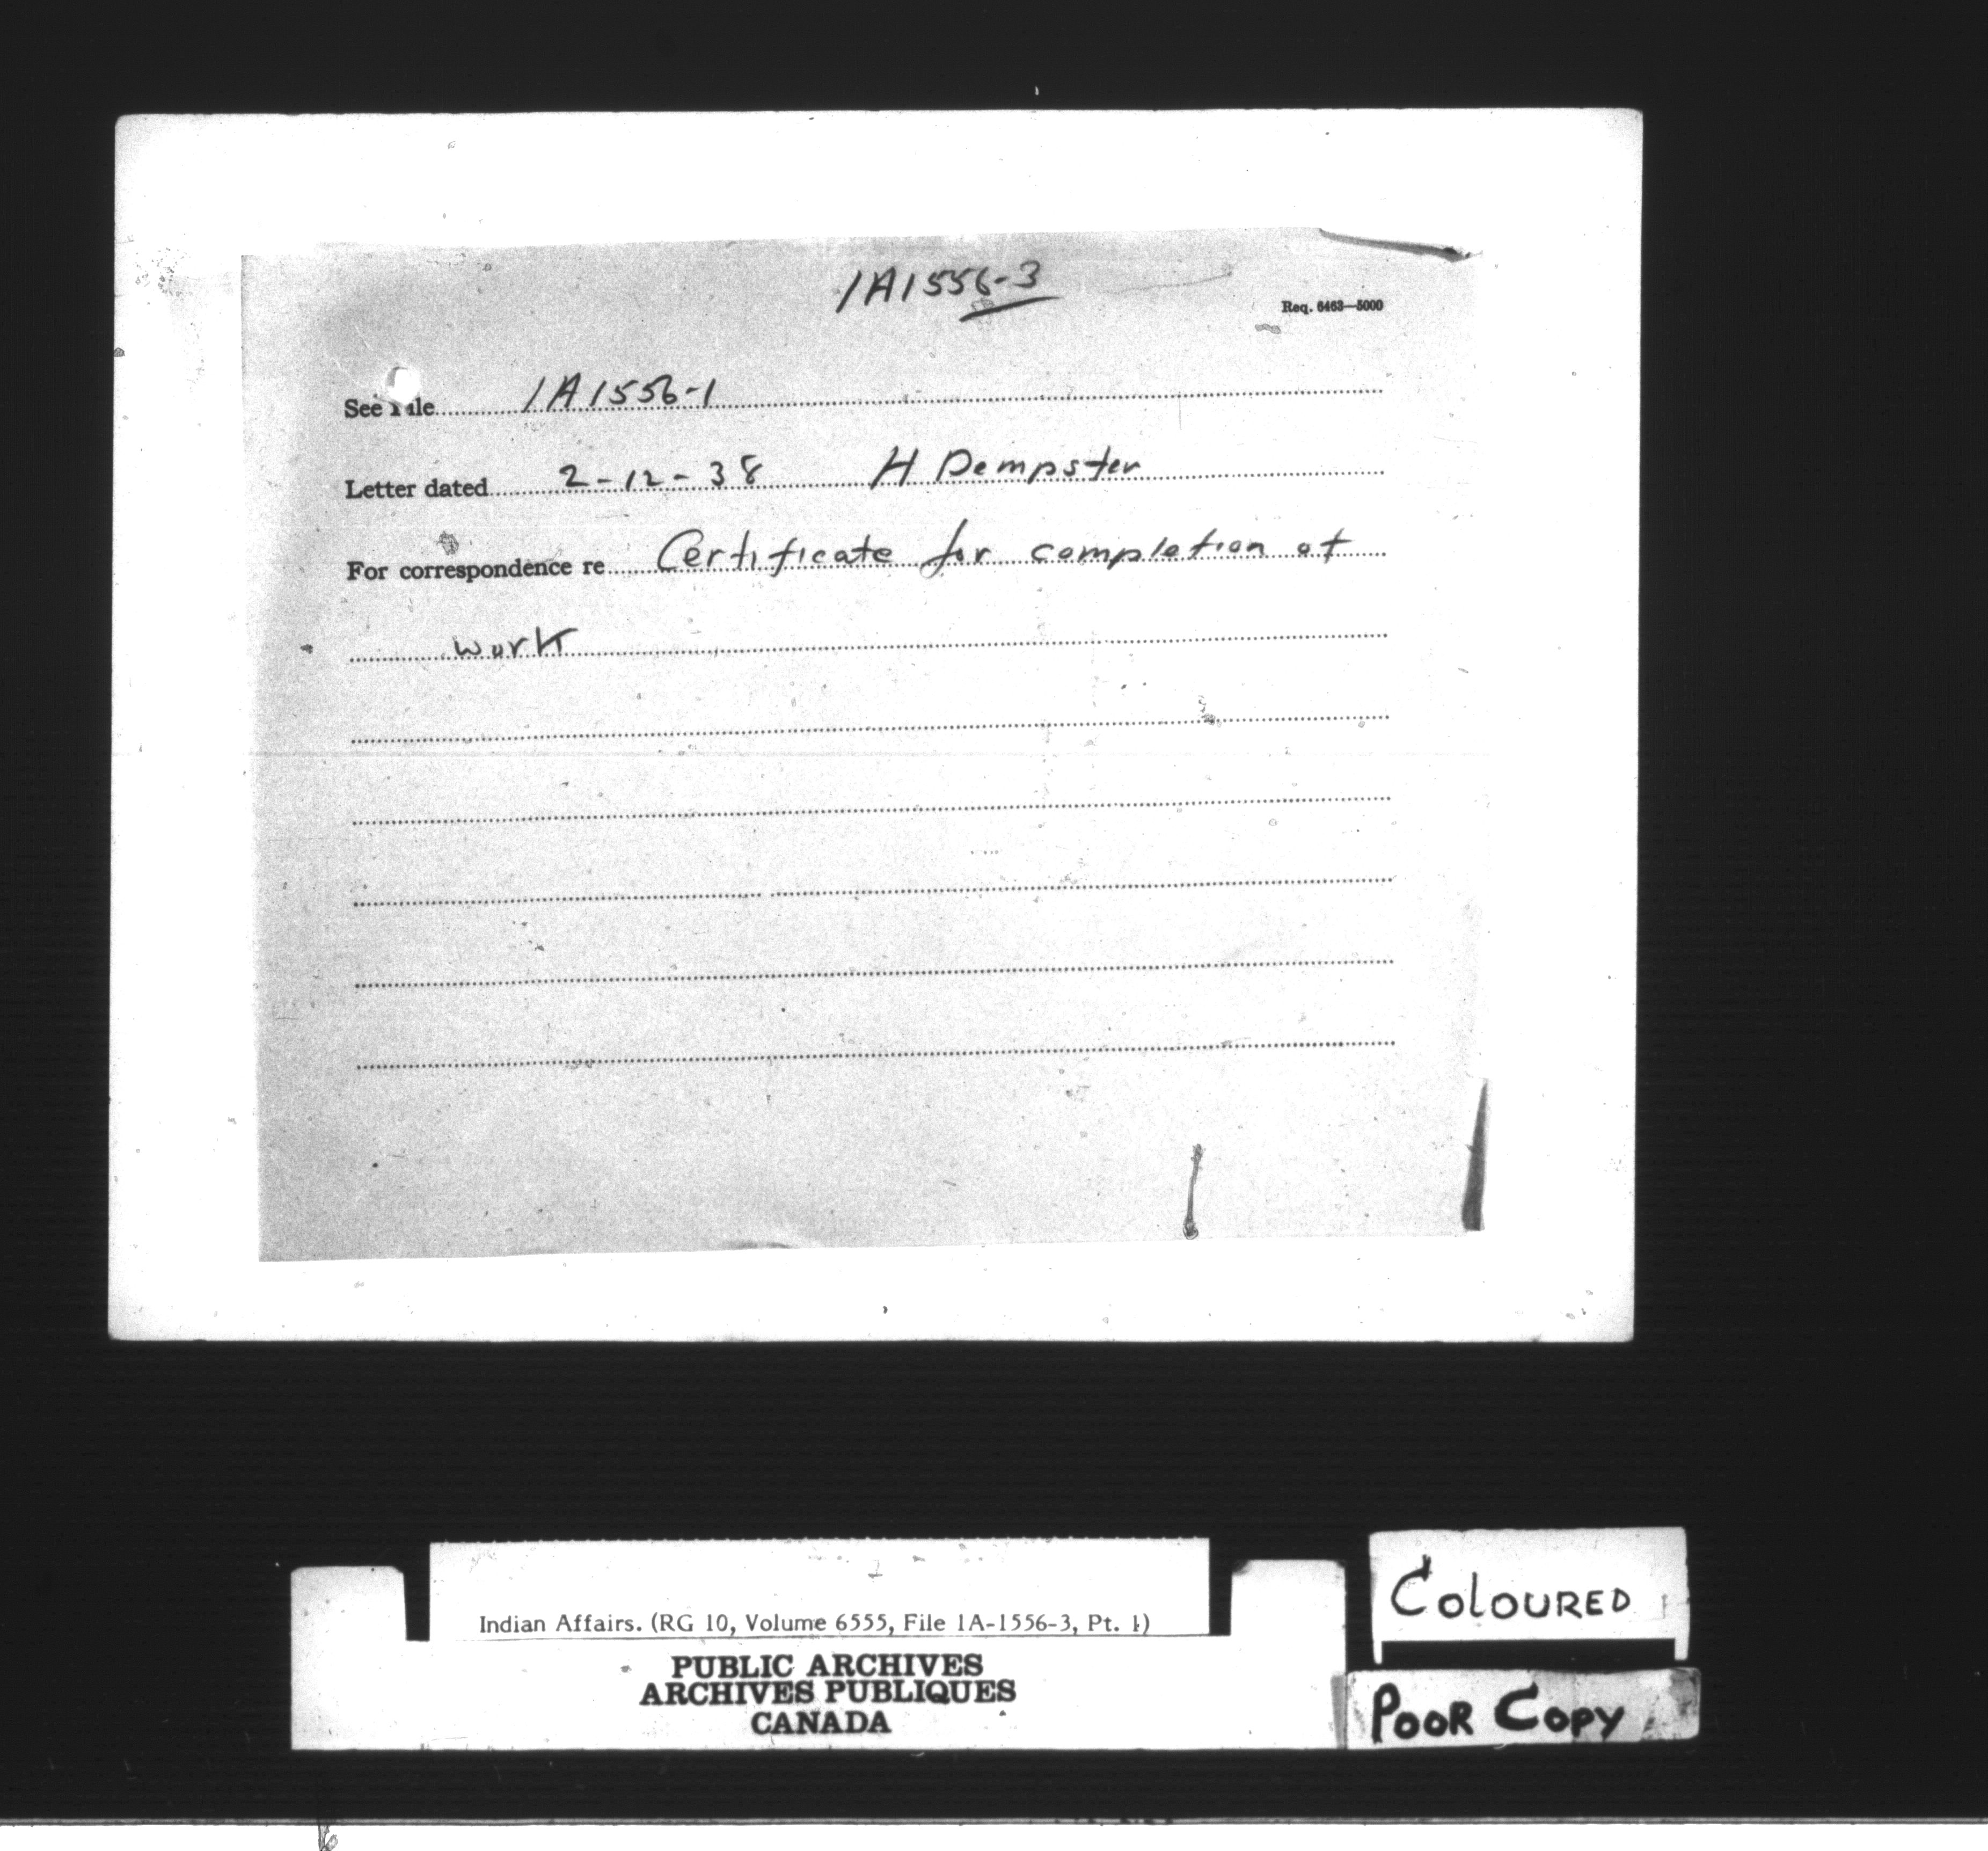 1A1556-3
Req. 6463—5000
See File 1A1556-1
Letter dated 2-12-38 H Dempster
For correspondence re Certificate for completion of
work
Indian Affairs. (RG 10, Volume 6555, File 1A-1556-3, Pt. 1)
PUBLIC ARCHIVES
ARCHIVES PUBLIQUES
CANADA
COLOURED
POOR COPY